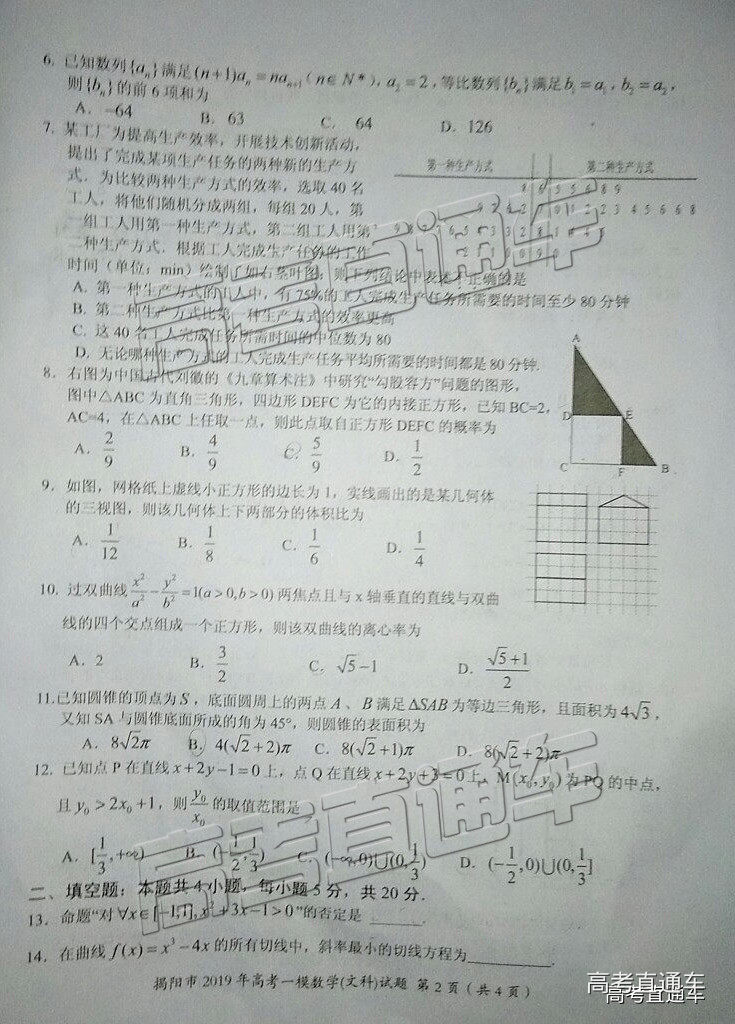 6. 已知数列{aₙ}满足(n+1)aₙ=naₙ₊₁(n∈N*), a₂=2, 等比数列{bₙ}满足b₁=a₁, b₂=a₂,
则{bₙ}的前6项和为
A. -64 B. 63 C. 64 D. 126
7. 某工厂为提高生产效率，开展技术创新活动，
提出了完成某项生产任务的两种新的生产方
式．为比较两种生产方式的效率，选取40名
工人，将他们随机分成两组，每组20人，第
一组工人用第一种生产方式，第二组工人用第
二种生产方式．根据工人完成生产任务的工作
时间（单位：min）绘制了如右茎叶图，则下列结论中表述不正确的是
第一种生产方式 第二种生产方式
8 6 5 5 6 8 9
A. 第一种生产方式的工人中，有75%的工人完成生产任务所需要的时间至少80分钟
B. 第二种生产方式比第一种生产方式的效率更高
C. 这40名工人完成任务所需时间的中位数为80
D. 无论哪种生产方式的工人完成生产任务平均所需要的时间都是80分钟.
8. 右图为中国古代刘徽的《九章算术注》中研究“勾股容方”问题的图形，
图中△ABC为直角三角形，四边形DEFC为它的内接正方形，已知BC=2,
AC=4，在△ABC上任取一点，则此点取自正方形DEFC的概率为
A. 2/9 B. 4/9 C. 5/9 D. 1/2
A
D E
C F B
9. 如图，网格纸上虚线小正方形的边长为1，实线画出的是某几何体
的三视图，则该几何体上下两部分的体积比为
A. 1/12 B. 1/8 C. 1/6 D. 1/4
10. 过双曲线x²/a²-y²/b²=1(a>0,b>0)两焦点且与x轴垂直的直线与双曲
线的四个交点组成一个正方形，则该双曲线的离心率为
A. 2 B. 3/2 C. √5-1 D. (√5+1)/2
11.已知圆锥的顶点为S，底面圆周上的两点A、B满足ΔSAB为等边三角形，且面积为4√3，
又知SA与圆锥底面所成的角为45°，则圆锥的表面积为
A. 8√2π B. 4(√2+2)π C. 8(√2+1)π D. 8(√2+2)π
12. 已知点P在直线x+2y-1=0上，点Q在直线x+2y+3=0上，M(x₀,y₀)为PQ的中点，
且y₀>2x₀+1，则y₀/x₀的取值范围是
A. [1/3,+∞) B. (-1/2,1/3) C. (-∞,0)∪(0,1/3) D. (-1/2,0)∪(0,1/3]
二、填空题：本题共4小题，每小题5分，共20分．
13. 命题“对∀x∈[-1,1],x²+3x-1>0”的否定是 ______．
14. 在曲线f(x)=x³-4x的所有切线中，斜率最小的切线方程为________．
揭阳市2019年高考一模数学(文科)试题 第2页（共4页）
高考直通车
高考直通车
高考直通车
高考直通车